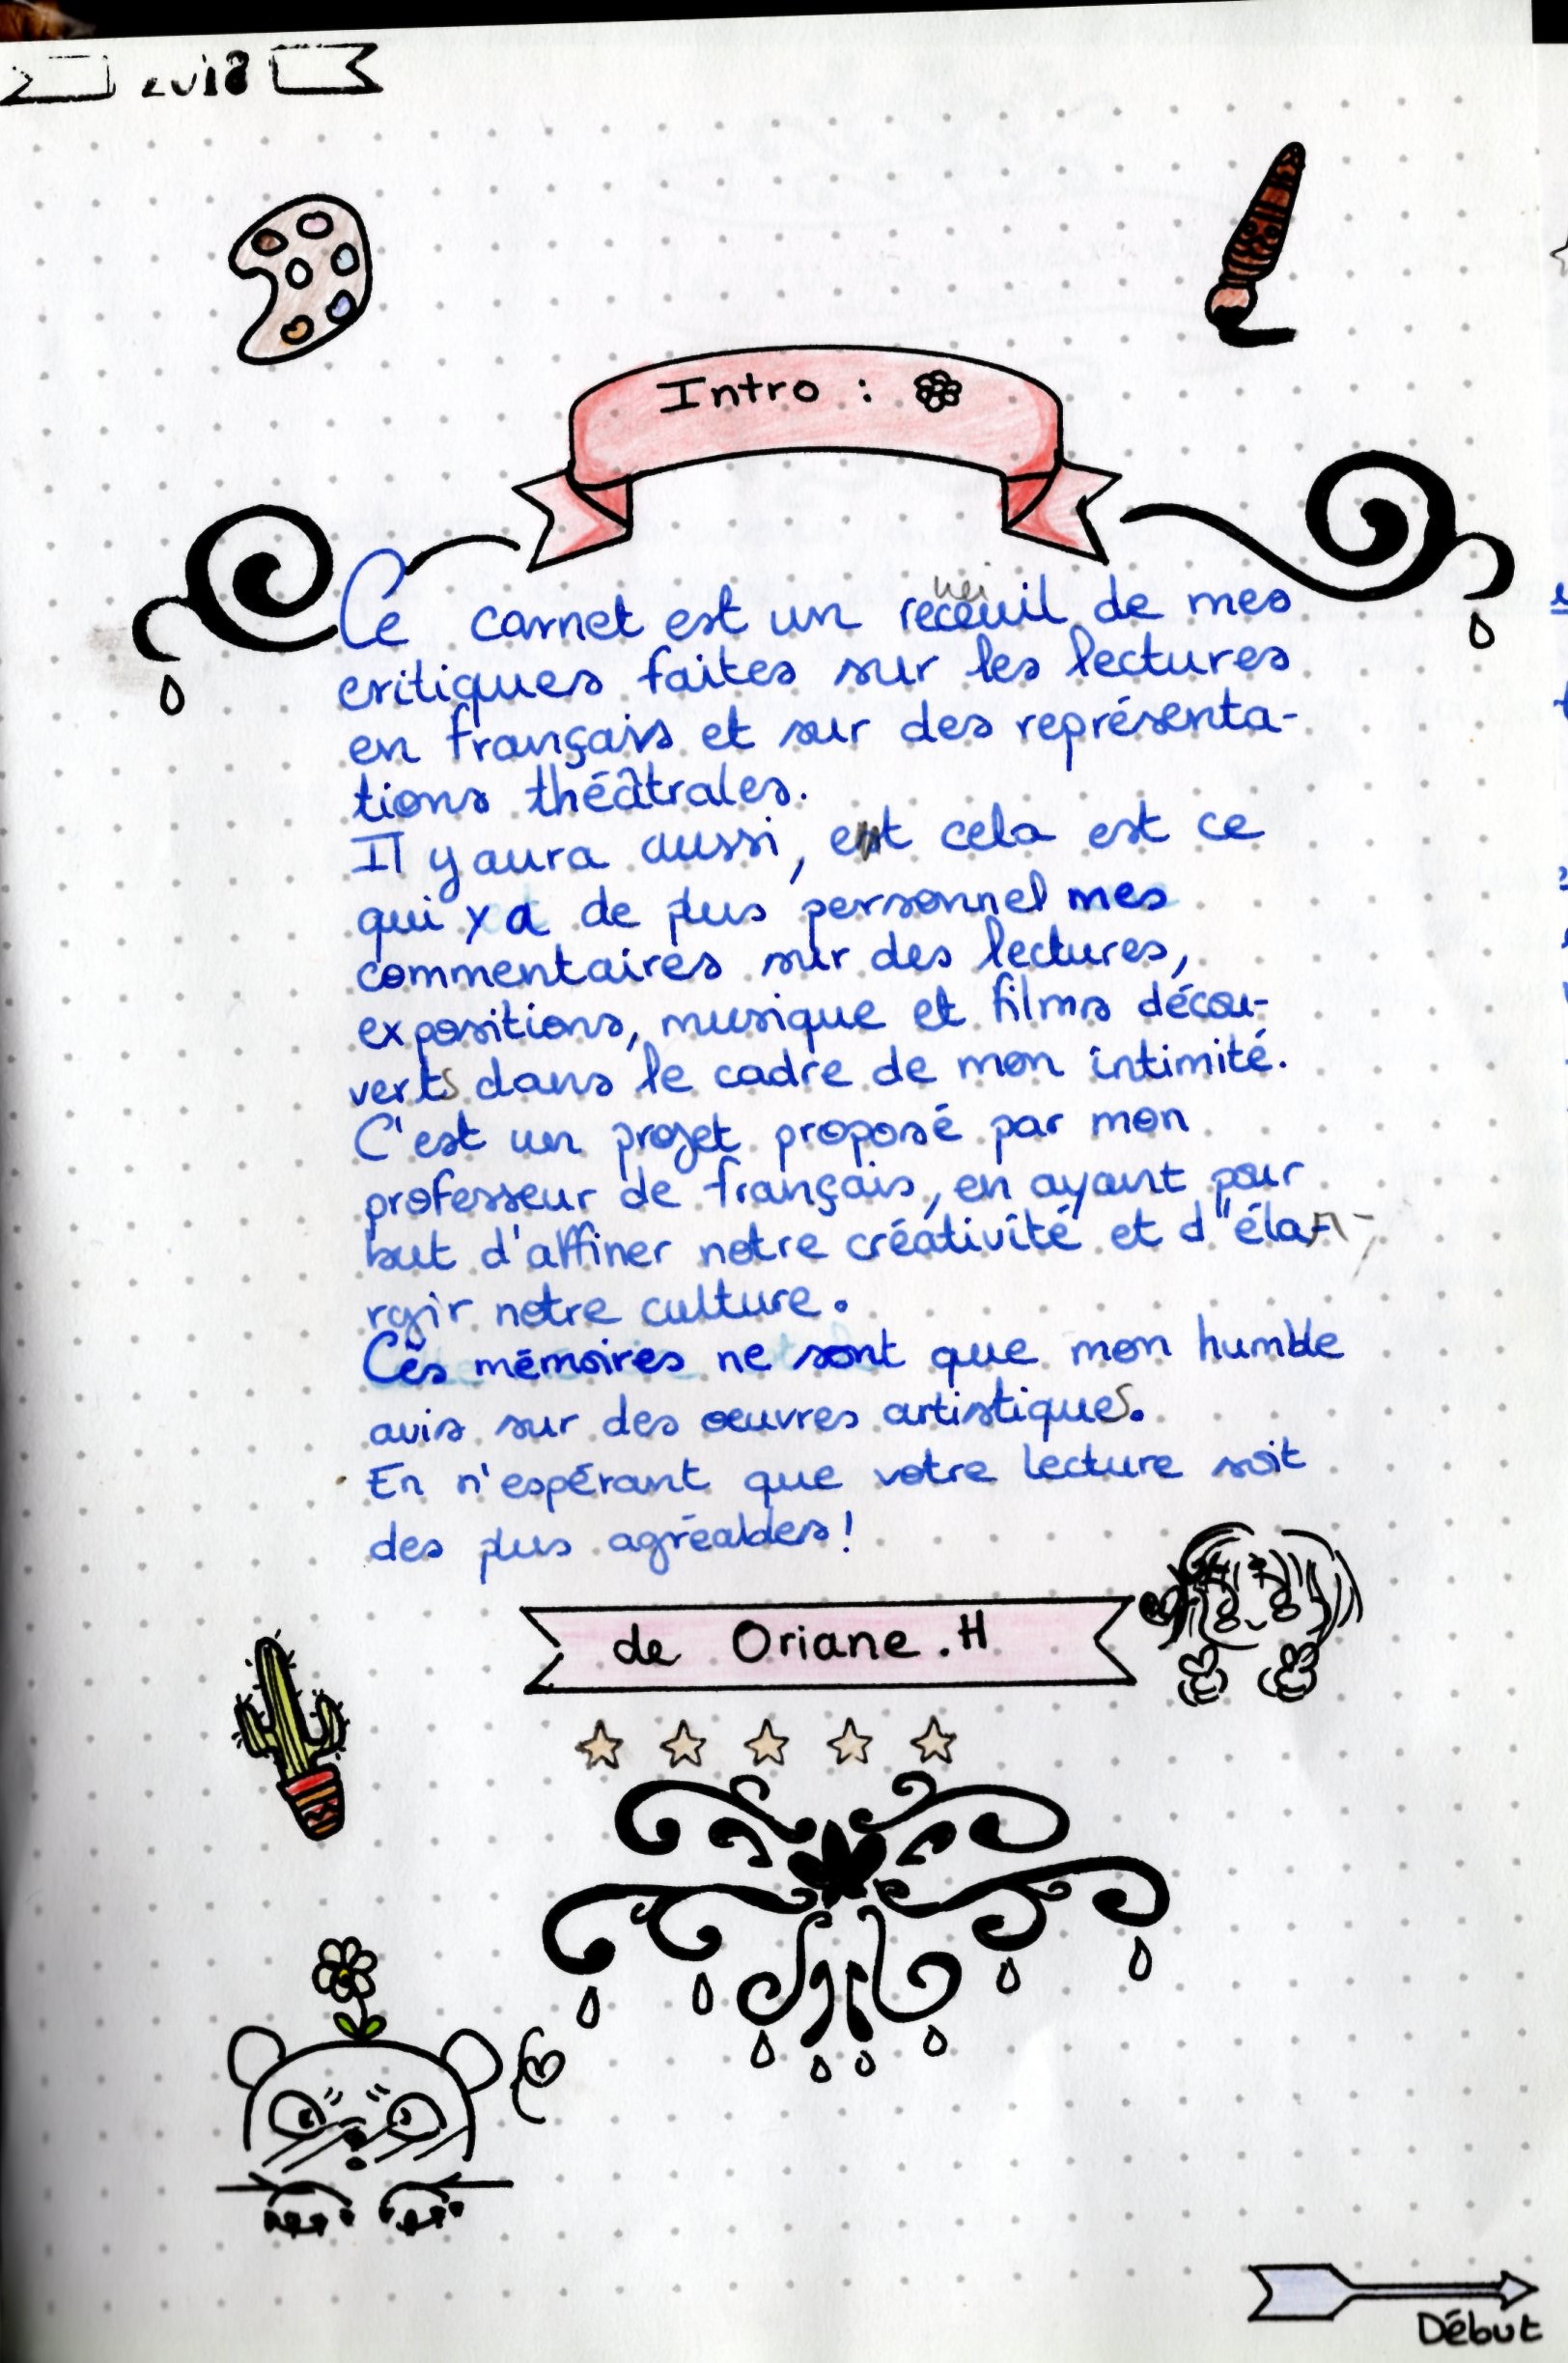 2018
Intro :
uei
Ce carnet est un receuil de mes
critiques faites sur les lectures
en français et sur des représenta-
tions théâtrales.
Il y aura aussi, et cela est ce
qui y a de plus personnel mes
commentaires sur des lectures,
expositions, musique et films décou-
verts dans le cadre de mon intimité.
C'est un projet proposé par mon
professeur de français, en ayant pour
but d'affiner notre créativité et d'élar-
rgir notre culture.
Ces mémoires ne sont que mon humble
avis sur des œuvres artistiques.
En n'espérant que votre lecture soit
des plus agréables !
de Oriane.H
Début